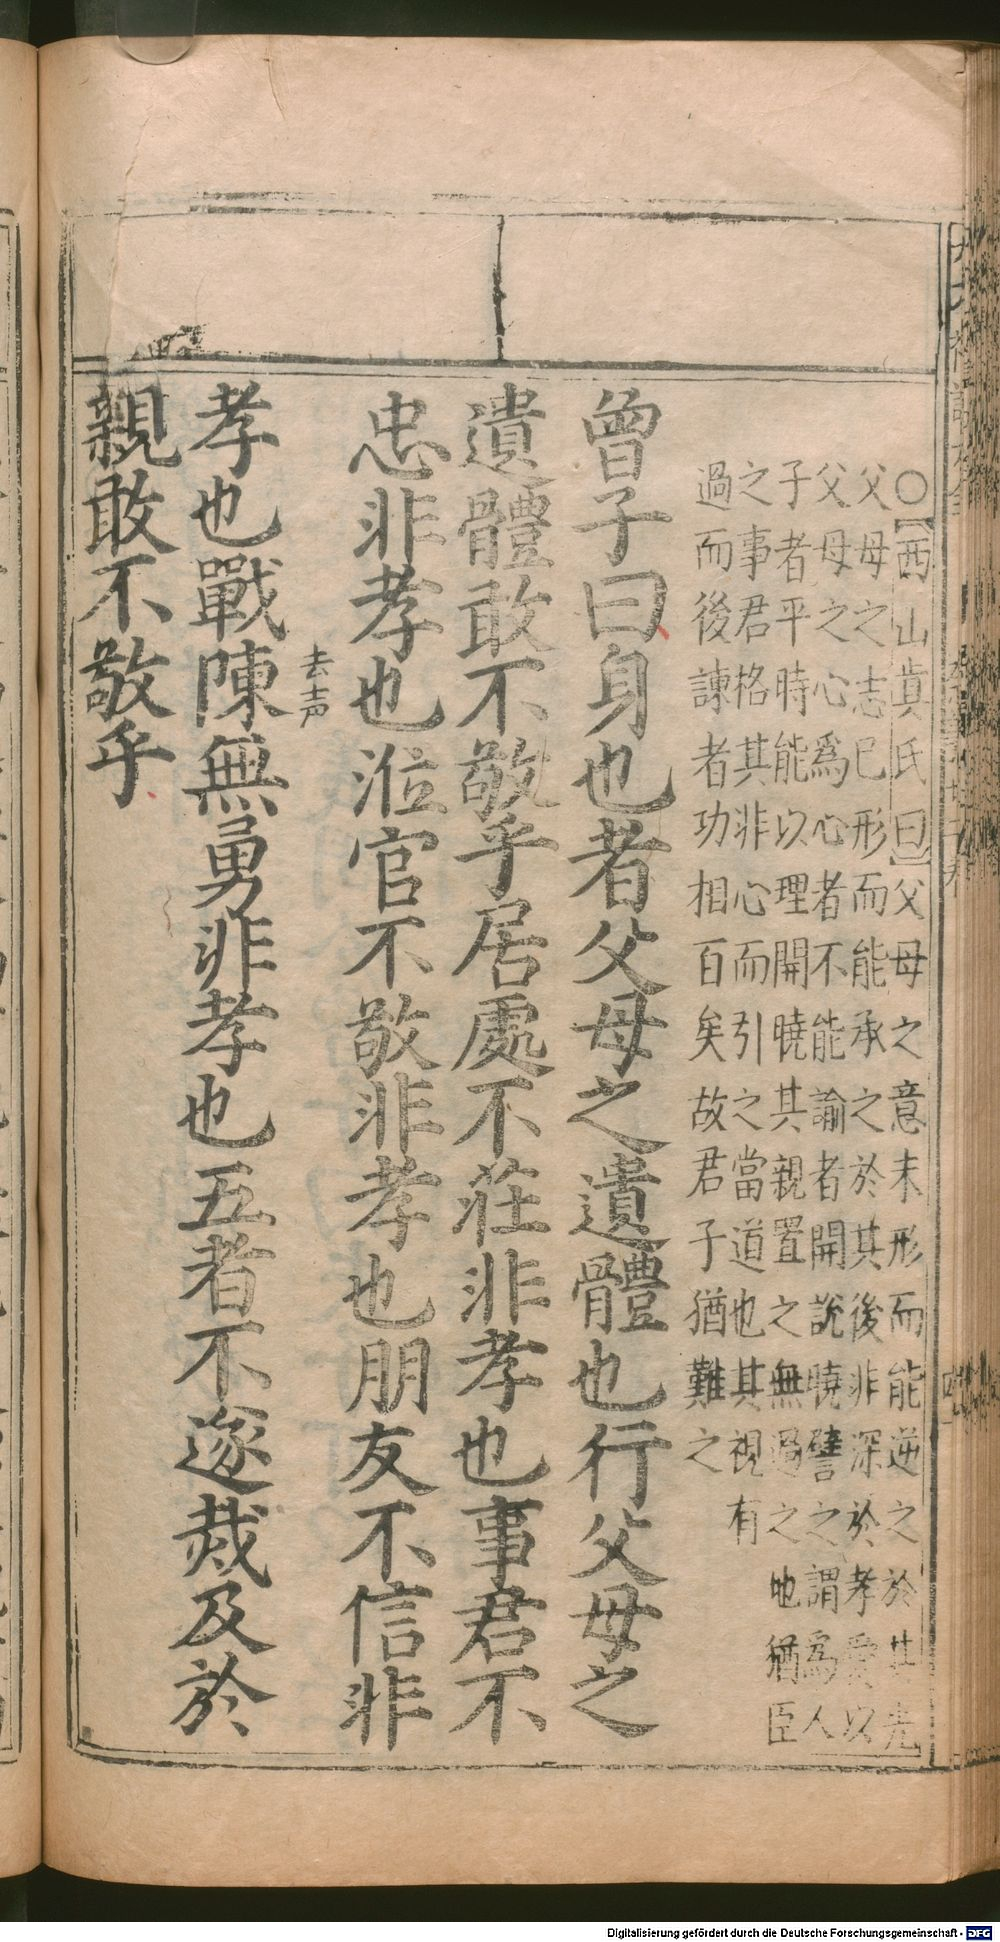 ○【西山眞氏曰】父母之意未形而能逆之於其先
父母之志已形而能承之於其後非深於孝愛以
父母之心爲心者不能諭者開說曉譬之謂爲人
子者平時能以理開曉其親置之無過之地猶臣
之事君格其非心而引之當道也其視有
過而後諫者功相百矣故君子猶難之
曾子曰身也者父母之遺體也行父母之
遺體敢不敬乎居處不莊非孝也事君不
忠非孝也涖官不敬非孝也朋友不信非
去声
孝也戰陳無勇非孝也五者不遂烖及於
親敢不敬乎
Digitalisierung gefördert durch die Deutsche Forschungsgemeinschaft - DFG